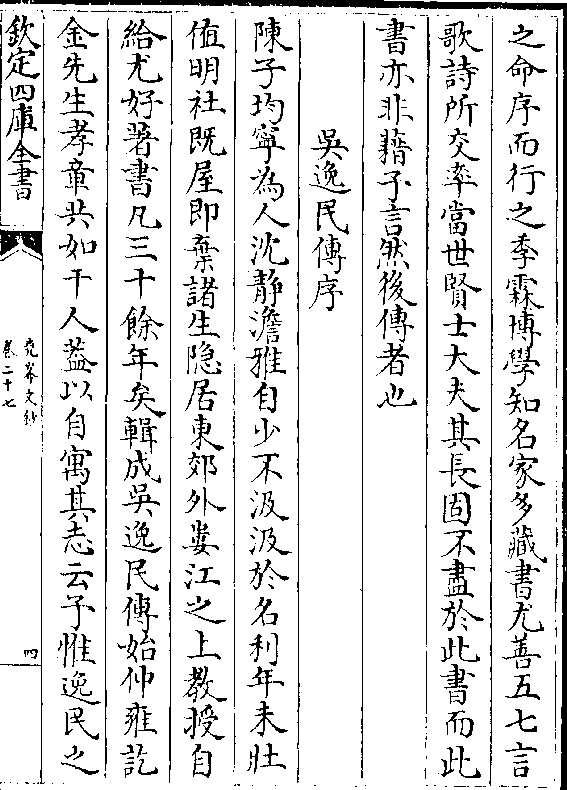 之命序而行之季霖博學知名家多藏書尤善五七言
歌詩所交率當世賢士大夫其長固不盡於此書而此
書亦非藉予言然後傳者也
吳逸民傳序
陳子均寧為人沈靜澹雅自少不汲汲於名利年未壯
值明社既屋即棄諸生隐居東郊外婁江之上教授自
給尤好著書凡三十餘年矣輯成吳逸民傳始仲雍訖
金先生孝章共如干人葢以自寓其志云予惟逸民之
欽定四庫全書
堯峯文鈔
卷二十七
四